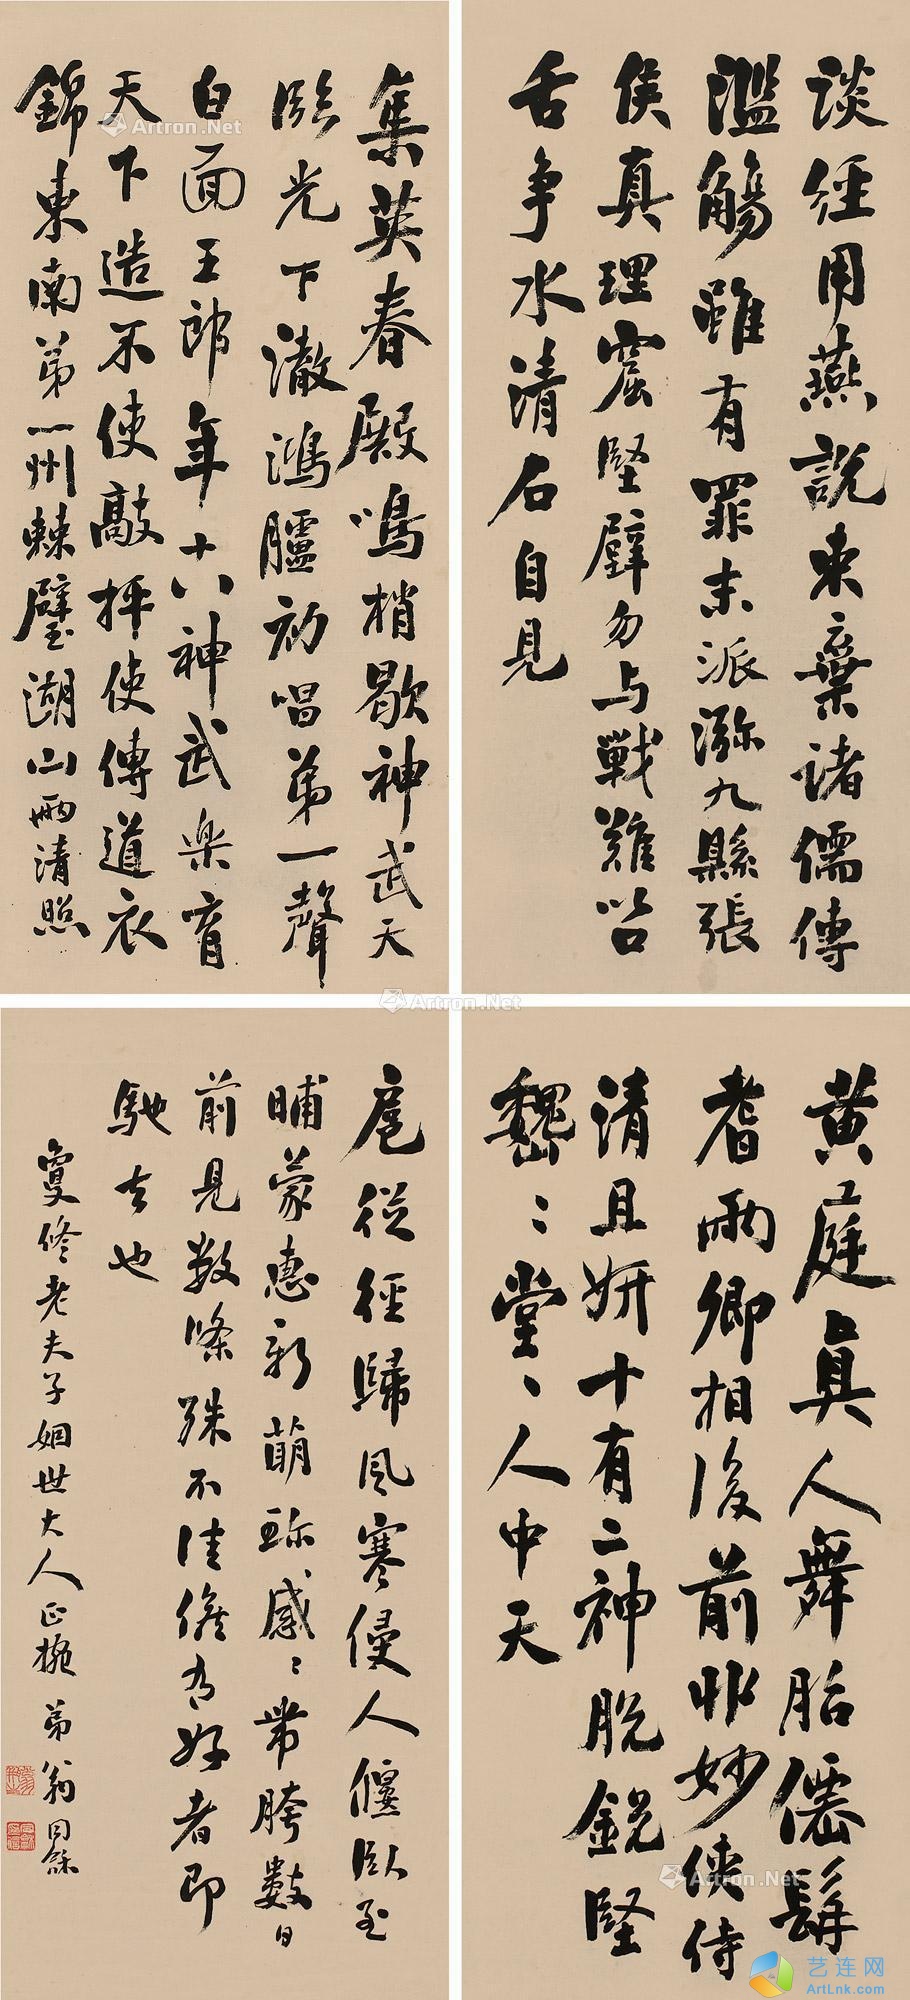 談經用燕說束棄諸儒傳
濫觴雖有罪末派瀰九縣張
侯真理窟堅壁勿与戰難以口
舌争水清石自見
集英春殿鳴梢歇神武天
臨光下澈鴻臚初唱第一聲
白面王郎年十八神武樂育
天下造不使敲抨使傳道衣
錦東南第一州棘璧湖山兩清照
黄庭真人舞胎僊髯
耆兩卿相後前丱妙俠侍
清且妍十有二神服銳堅
巍〻堂〻人中天
扈從徑歸風寒侵人偃臥至
晡蒙惠新萌珎感〻帶胯數日
前見數條殊不佳候有好者即
馳去也
老夫子姻世大人正捥 弟翁同龢
Artron.Net
Artron.Net
Artron.Net
Artron.Net
艺连网
ArtLnk.com